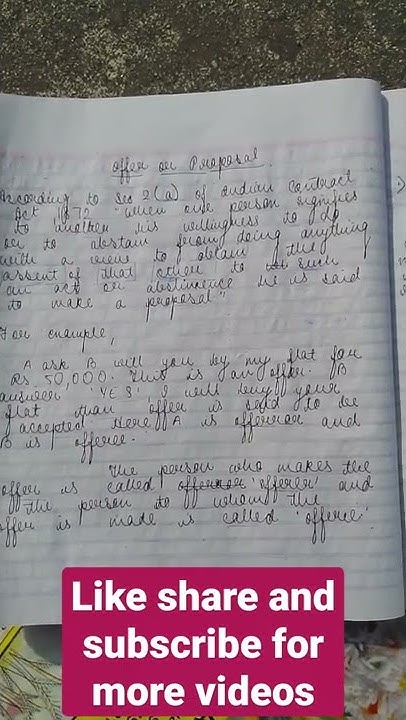 offer or Proposal
According to sec 2(a) of Indian Contract
Act 1872 "when one person signifies
to another his willingness to do
or to abstain from doing anything
with a view to obtain the
assent of that other to such
an act or abstinence he is said
to make a proposal"
For example,
A ask B will you by my flat for
Rs 50,000. This is an offer. B
answer 'YES', I will buy your
flat than offer is said to be
accepted. Here A is offerror and
B is offeree.
The person who makes the
offer is called offerror 'offerer' and
the person to whom the
offer is made is called 'offeree'
Like share and
subscribe for
more videos